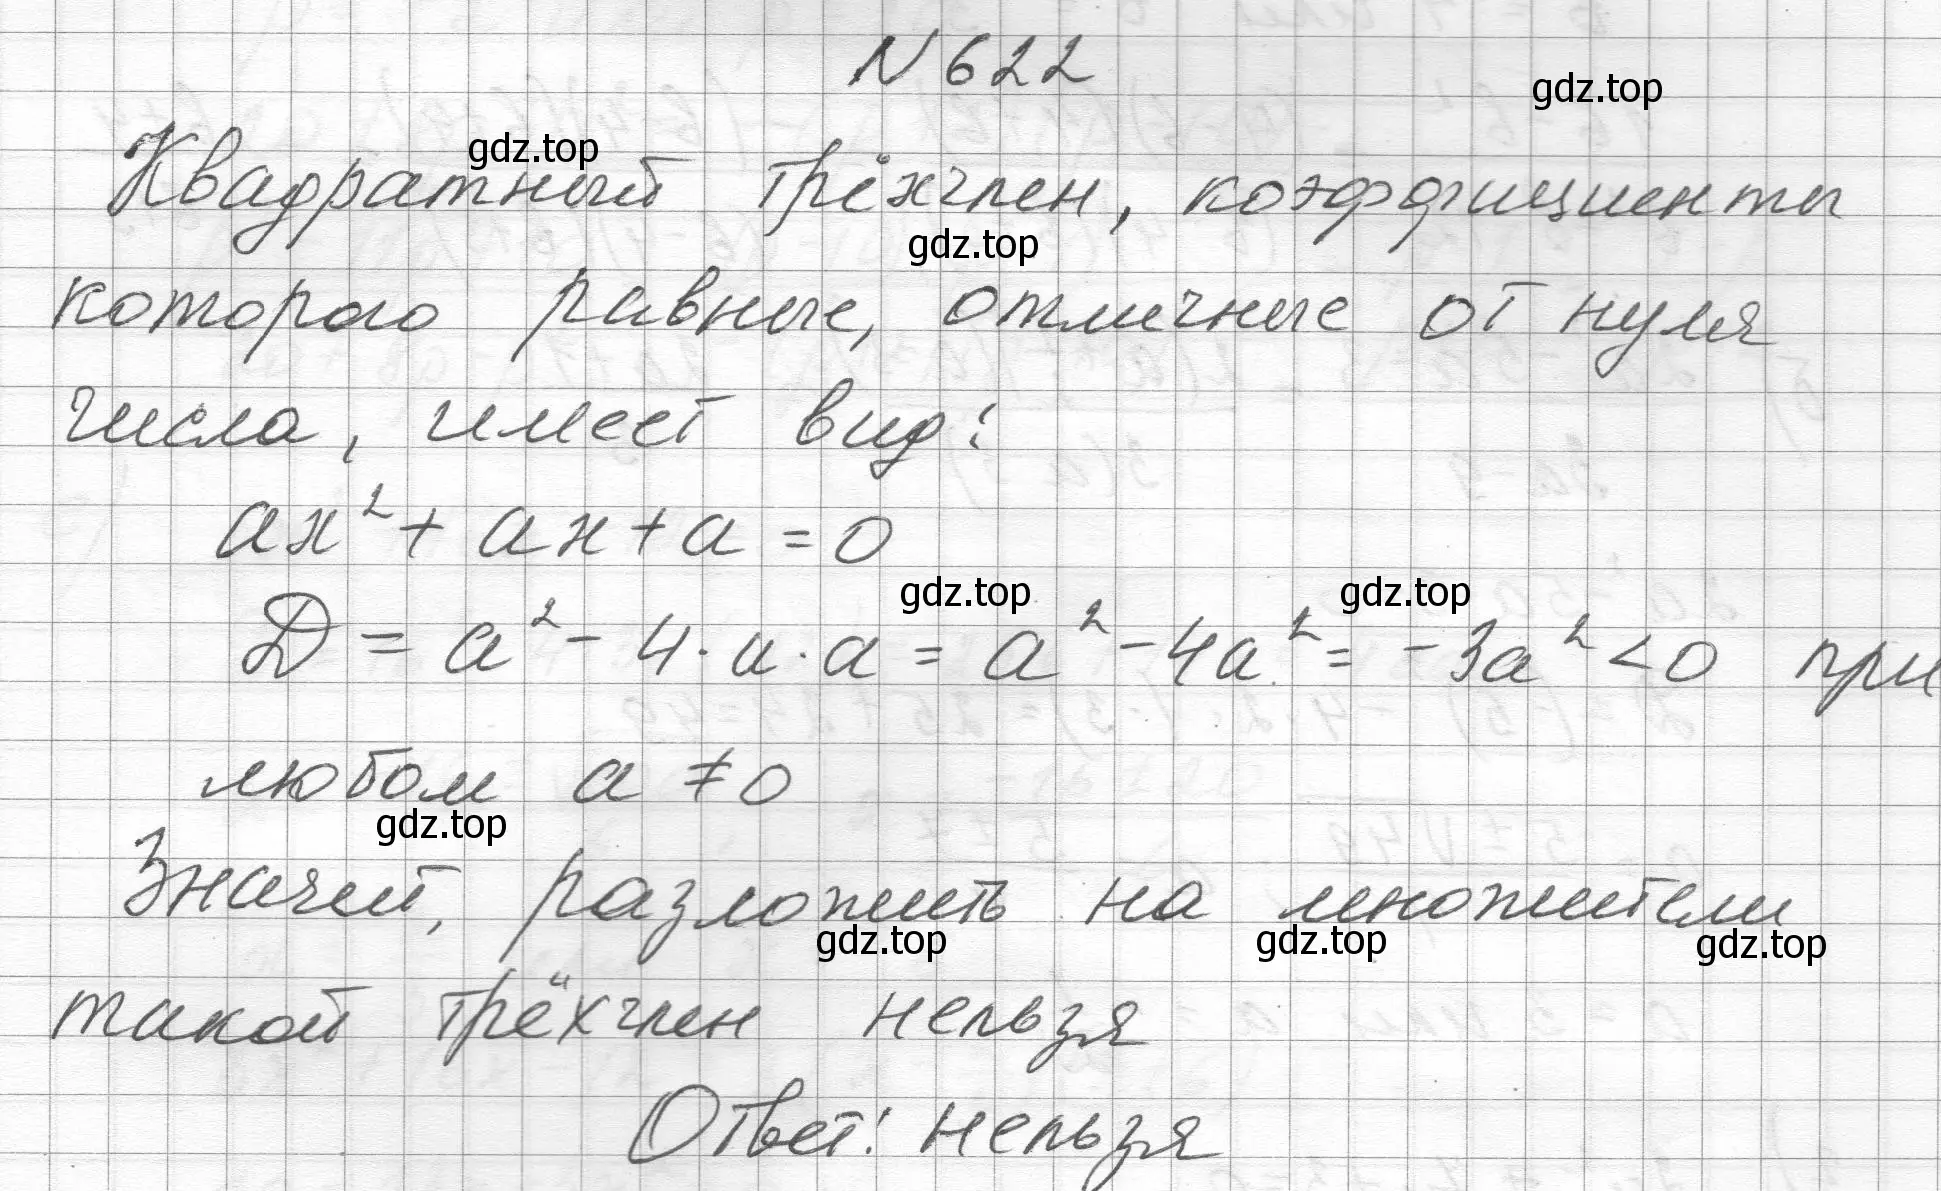 N 622
gdz.top
Квадратный трёхчлен, коэффициенты
gdz.top
gdz.top
которого равные, отличные от нуля
числа, имеет вид:
ax² + ax + a = 0
gdz.top
gdz.top
D = a² - 4 · a · a = a² - 4a² = -3a² < 0 при
любом a ≠ 0
gdz.top
Значит, разложить на множители
gdz.top
gdz.top
gdz.top
такой трёхчлен нельзя
Ответ: нельзя